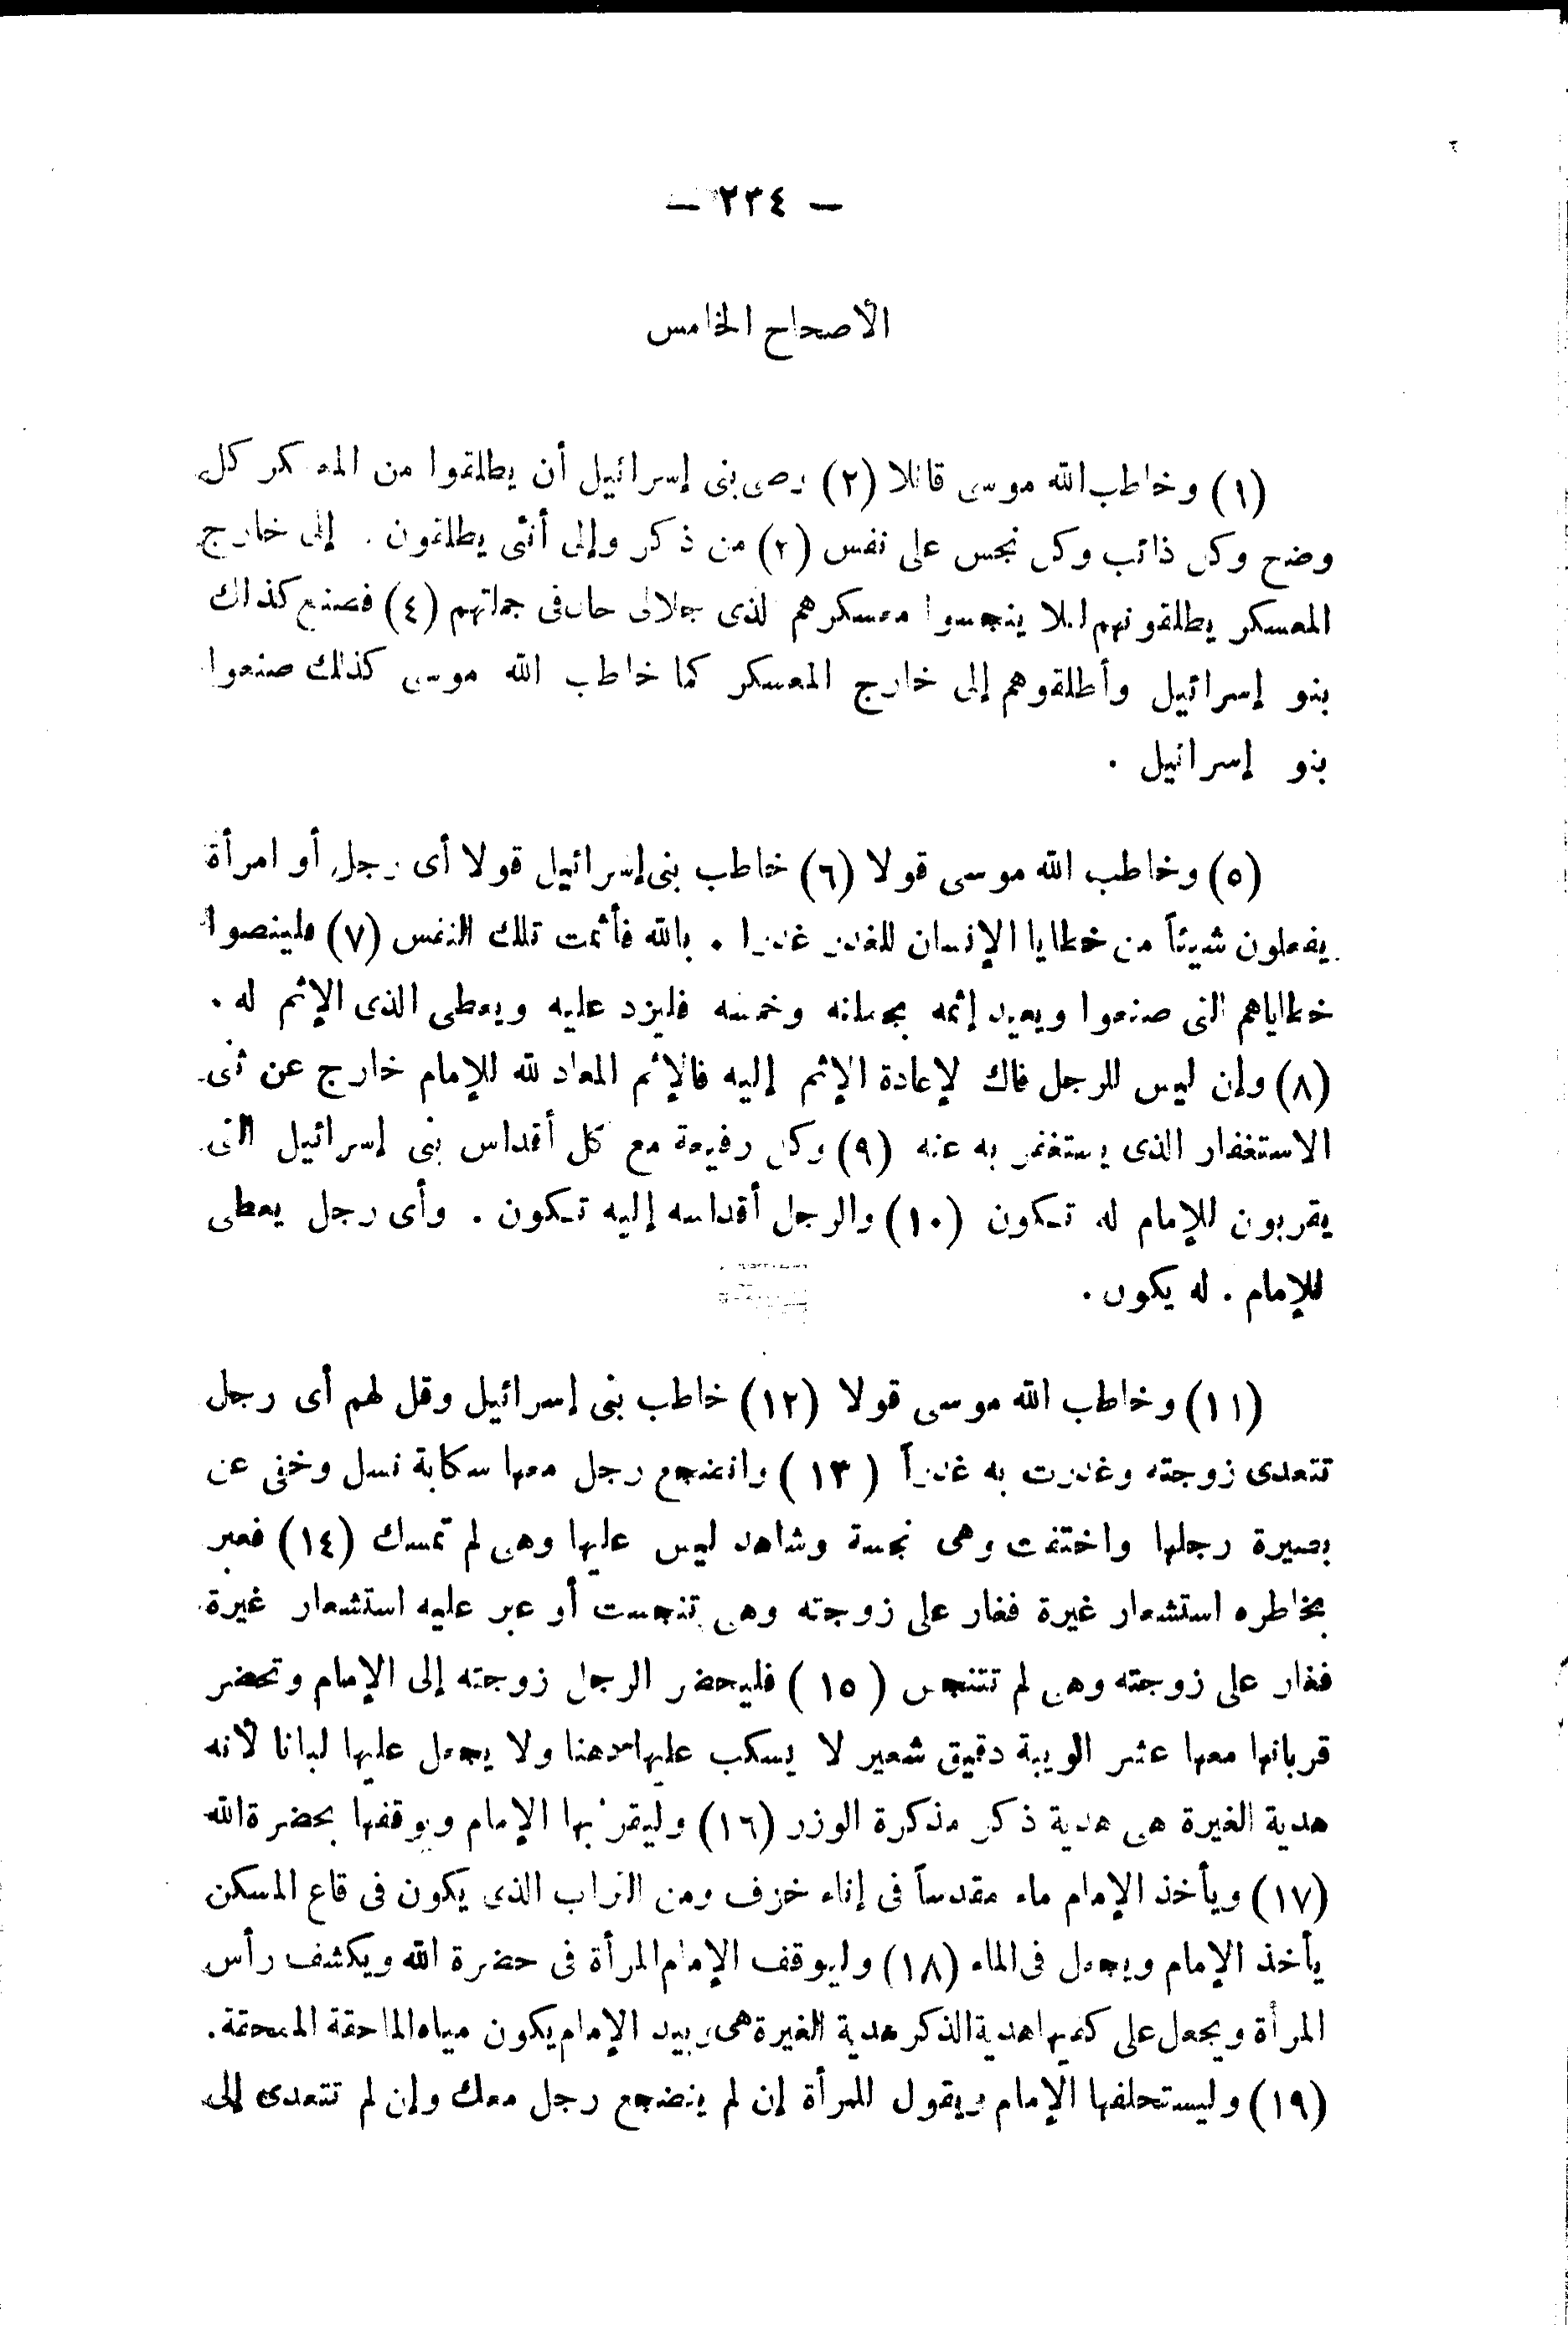 — ٢٣٤ —
الأصحاح الخامس
(١) وخاطب الله موسى قائلا (٢) وصى بنى إسرائيل أن يطلقوا من المعسكر كل
وضح وكل ذائب وكل نجس على نفس (٣) من ذكر وإلى أنثى يطلقون . إلى خارج
المعسكر يطلقونهم لئلا ينجسوا معسكرهم لذى جلالى حال فى جملتهم (٤) فصنع كذلك
بنو إسرائيل وأطلقوهم إلى خارج المعسكر كما خاطب الله موسى كذلك صنعوا
بنو إسرائيل .
(٥) وخاطب الله موسى قولا (٦) خاطب بنى إسرائيل قولا أى رجل أو امرأة
يفعلون شيئاً من خطايا الإنسان للغدر غدرا . بالله فأثمت تلك النفس (٧) فلينصوا
خطاياهم التى صنعوا ويعيد إثمه بجملته وخمسه فليزد عليه ويعطى الذى الإثم له .
(٨) وإن ليس للرجل فاك لإعادة الإثم إليه فالإثم المعاد لله للإمام خارج عن ثنى
الاستغفار الذى يستغفر به عنه (٩) وكل رفيعة مع كل أقداس بنى إسرائيل التى
يقربون للإمام له تكون (١٠) والرجل أقداسه إليه تكون . وأى رجل يعطى
للإمام . له يكون .
(١١) وخاطب الله موسى قولا (١٢) خاطب بنى إسرائيل وقل لهم أى رجل
تتعدى زوجته وغدرت به غدراً (١٣) وانضجع رجل معها سكابة نسل وخفى عن
بصيرة رجلها واختفت وهى نجسة وشاهد ليس عليها وهى لم تمسك (١٤) فعبر
بخاطره استشعار غيرة فغار على زوجته وهى تنجست أو عبر عليه استشعار غيرة
فغار على زوجته وهى لم تتنجس (١٥) فليحضر الرجل زوجته إلى الإمام وتحضر
قربانها معها عشر الويبة دقيق شعير لا يسكب عليها دهنا ولا يجعل عليها لبانا لأنه
هدية الغيرة هى هدية ذكر مذكرة الوزر (١٦) وليقربها الإمام ويوقفها بحضرة الله
(١٧) ويأخذ الإمام ماء مقدساً فى إناء خزف ومن التراب الذى يكون فى قاع المسكن
يأخذ الإمام ويجعل فى الماء (١٨) وليوقف الإمام المرأة فى حضرة الله ويكشف رأس
المرأة ويجعل على كفيها هدية الذكر هدية الغيرة هى وبيد الإمام يكون مياه الماحقة الممحقة .
(١٩) وليستحلفها الإمام ويقول للمرأة إن لم ينضجع رجل معك وإن لم تتعدى إلى